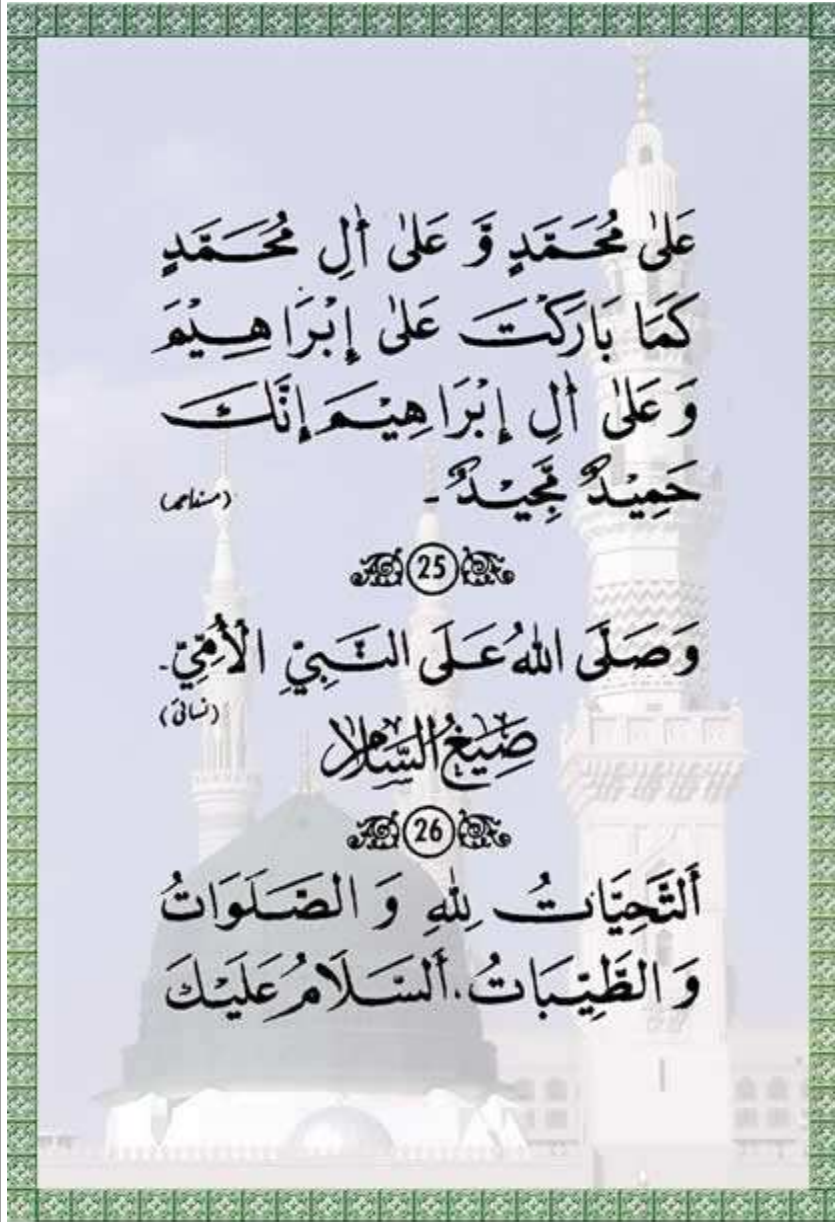 عَلىٰ مُحَمَّدٍ وَّ عَلىٰ أٰلِ مُحَمَّدٍ
كَمَا بَارَكْتَ عَلىٰ إِبْرَاهِيْمَ
وَ عَلىٰ أٰلِ إِبْرَاهِيْمَ إِنَّكَ
حَمِيْدٌ مَّجِيْدٌ۔
(مسند احمد)
25
وَصَلَّى اللهُ عَلَى النَّبِيِّ الْأُمِّيِّ۔
(نسائی)
صِيَغُ السَّلَام
26
أَلتَّحِيَّاتُ لِلّٰهِ وَ الصَّلَوَاتُ
وَ الطَّيِّبَاتُ، أَلسَّلَامُ عَلَيْكَ